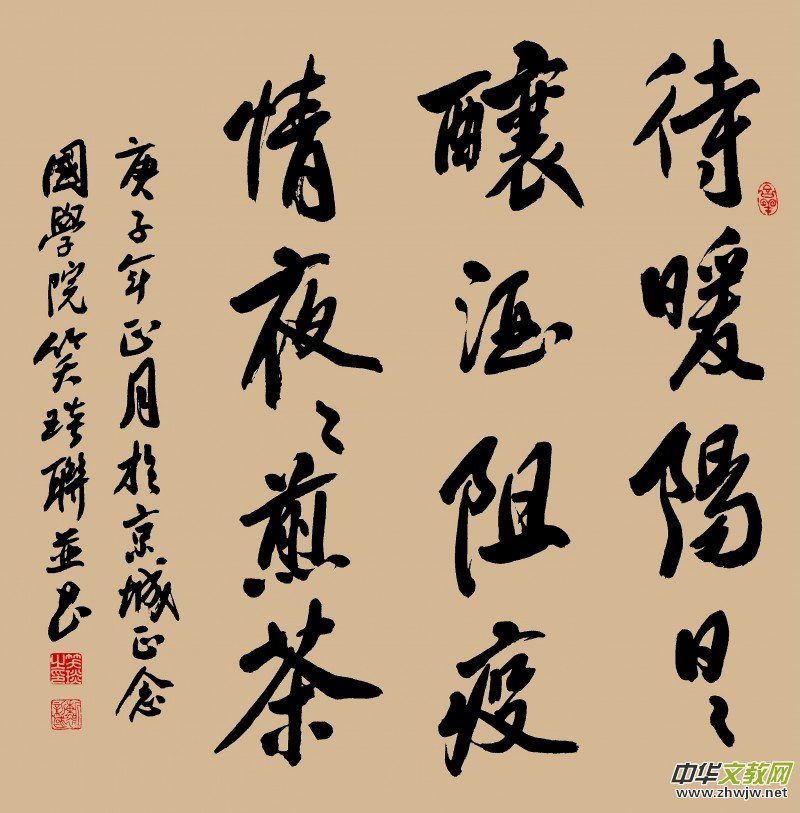 待暖陽日〻
釀酒阻疫
情夜〻煎茶
庚子年正月於京城正念
國學院笑琰聯並书
中华文教网
www.zhwjw.net